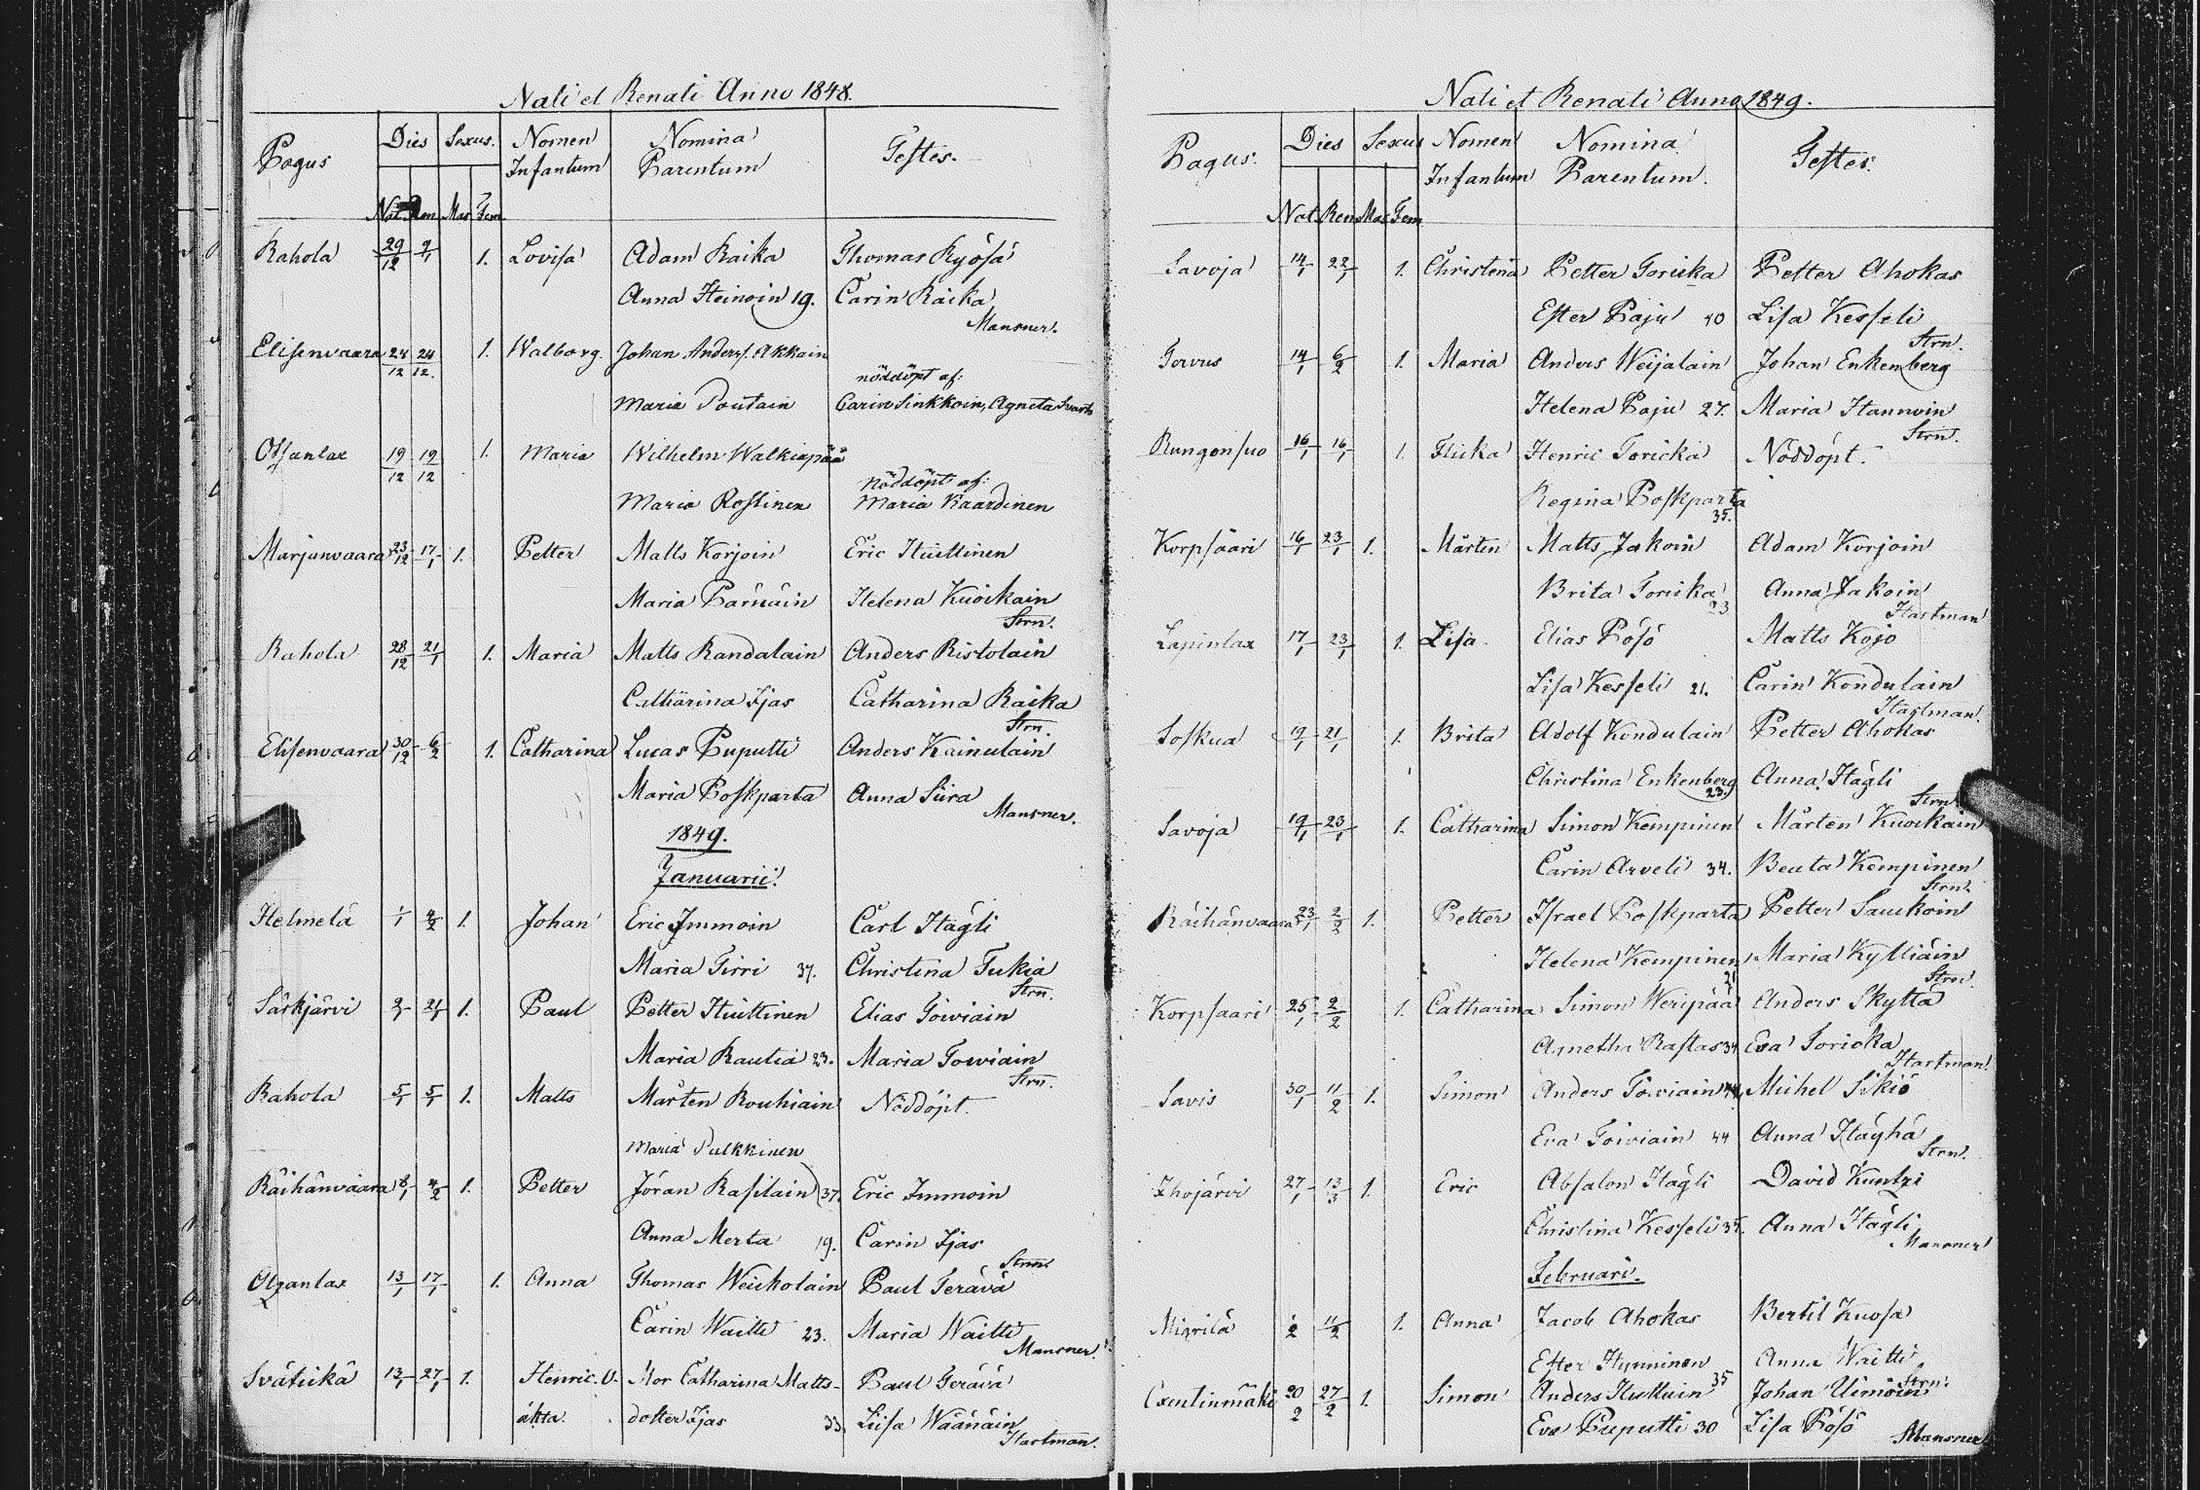 Nati et Renati Anno 1848.
Pagus Dies Sexus. Nomen Infantum Nomina Parentum Testes.
Nat. Ren. Mas. Fem.
Rahola 29/12 9/1 1. Lovisa Adam Raika Thomas Ryösä
Anna Heinoin 19. Carin Raika
Mansner.
Elisenvaara 24/12 24/12. 1. Walborg Johan Anders. Akkain
nöddöpt af:
Maria Poutain Carin Sinkkoin, Agneta
19/12 19/12 1. Maria Wilhelm Walkiapää
nöddöpt af:
Maria Rossinen Maria Kaardinen
Marjanvaara 23/12 17/1 1. Petter Matts Korjoin Eric Huittinen
Maria Pärnäin Helena Kuoikain
Strn.
Rahola 28/12 21/1 1. Maria Matts Randalain Anders Ristolain
Catharina Ijas Catharina Raika
Strn.
Elisenvaara 30/12 6/2 1. Catharina Lucas Puputti Anders Kainulain
Maria Poskparta Anna Siira
Mansner.
1849.
Januarii.
Helmelä 1/1 4/2 1. Johan Eric Immoin Carl Hägli
Maria Tirri 37. Christina Tukia
Strn.
Särkjärvi 2/1 21/1 1. Paul Petter Huittinen Elias Toiviain
Maria Rautia 23. Maria Toiviain
Strn.
Rahola 5/1 5/1 1. Matts Mårten Rouhiain Nöddöpt.
Maria Pulkkinen
Räihänvaara 8/1 4/2 1. Petter Jöran Rastain 37. Eric Immoin
Anna Merta 19. Carin Ijas
Strn.
13/1 17/1 1. Anna Thomas Weikolain Paul Terävä
Carin Waitti 23. Maria Waitti
Mansner.
Svätickä 13/1 27/1 1. Henric. O- Mor Catharina Matts- Paul Terävä
äkta. dotter Ijas 33. Liisa Wäänäin
Hartman.
Nati et Renati Anno 1849.
Pagus. Dies Sexus Nomen Infantum Nomina Parentum. Testes.
Nat. Ren. Mas. Fem.
Savoja 14/1 22/1 1. Christina Petter Toricka Petter Ahokas
Ester Paju 40 Lisa Kesseli
Strn.
Torvus 14/1 6/2 1. Maria Anders Weijalain Johan Enkenberg
Helena Paju 27. Maria Hannoin
Strn.
Rungonsuo 16/1 16/1 1. Flicka Henric Toricka Nöddöpt.
Regina Poskparta
35.
Korpsaari 16/1 23/1 1. Mårten Matts Jakoin Adam Korjoin
Brita Toricka 23 Anna Jakoin
Hartman
Lapinlax 17/1 23/1 1. Lisa Elias Pösö Matts Kojo
Lisa Kesseli 21. Carin Kondulain
Hartman.
Soskua 19/1 21/1 1. Brita Adolf Kondulain Petter Ahokas
Christina Enkenberg 23. Anna Hägli
Strn.
Savoja 19/1 23/1 1. Catharina Simon Kempinen Mårten Kuoikain
Carin Arveli 34. Beata Kempinen
Strn.
Räihänvaara 23/1 2/2 1. Petter Israel Poskparta Petter Saukoin
Helena Kempinen 21 Maria Kylliäin
Strn.
Korpsaari 25/1 2/2 1. Catharina Simon Weripää Anders Skyttä
Agnetha Rastas 34 Eva Toricka
Hartman
Savis 30/1 11/2 1. Simon Anders Toiviain 44 Michel Sikiö
Eva Toiviain 44 Anna Häyhä
Strn.
Ihojärvi 27/1 13/3 1. Eric Absalon Hägli David Kuntzi
Christina Kesseli Anna Hägli
Mansner
Februari.
Migrilä 2/2 11/2 1. Anna Jacob Ahokas Bertil Kuosa
Ester Hynninen 35 Anna Waitti
Strn.
Oxentinmäki 20/2 27/2 1. Simon Anders Huttuin Johan Uimoin
Eva Puputti 30 Lisa Pösö
Mansner